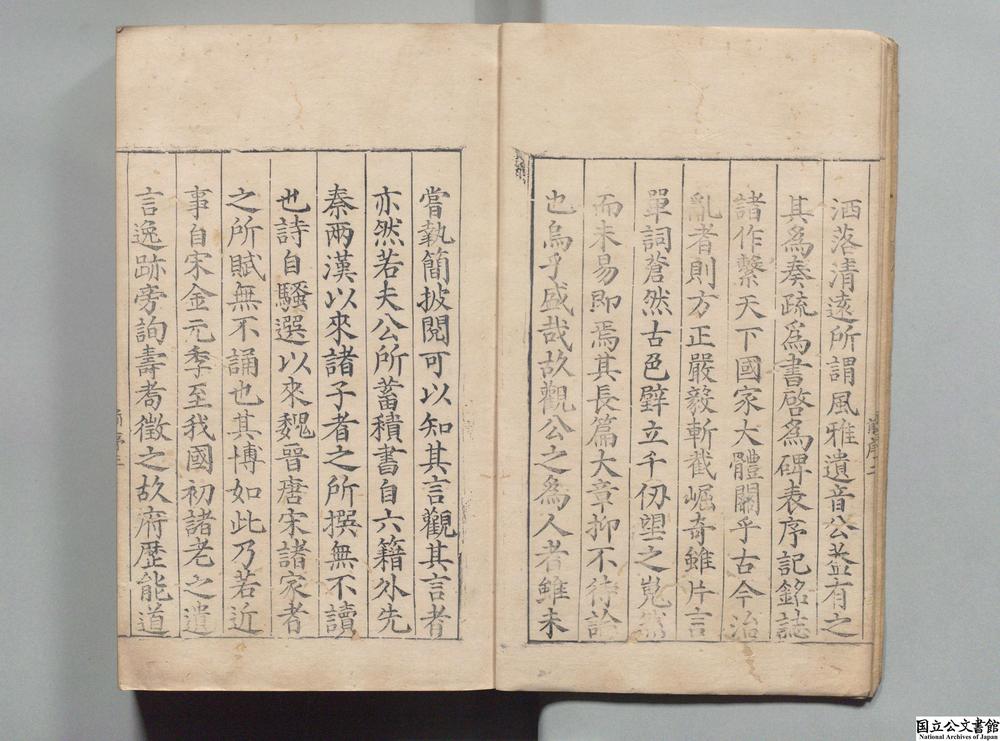 洒落清遠所謂風雅遺音公益有之
其爲奏疏爲書啓爲碑表序記銘誌
諸作繫天下國家大體關乎古今治
亂者則方正嚴毅斬截崛奇雖片言
單詞蒼然古色壁立千仞望之嵬然
而未易即焉其長篇大章抑不待論
也烏乎盛哉故觀公之爲人者雖未
嘗執簡披閱可以知其言觀其言者
亦然若夫公所蓄積書自六籍外先
秦兩漢以來諸子者之所撰無不讀
也詩自騷選以來魏晉唐宋諸家者
之所賦無不誦也其博如此乃若近
事自宋金元季至我國初諸老之遺
言逸跡旁詢壽耈徵之故府歷能道
国立公文書館
National Archives of Japan